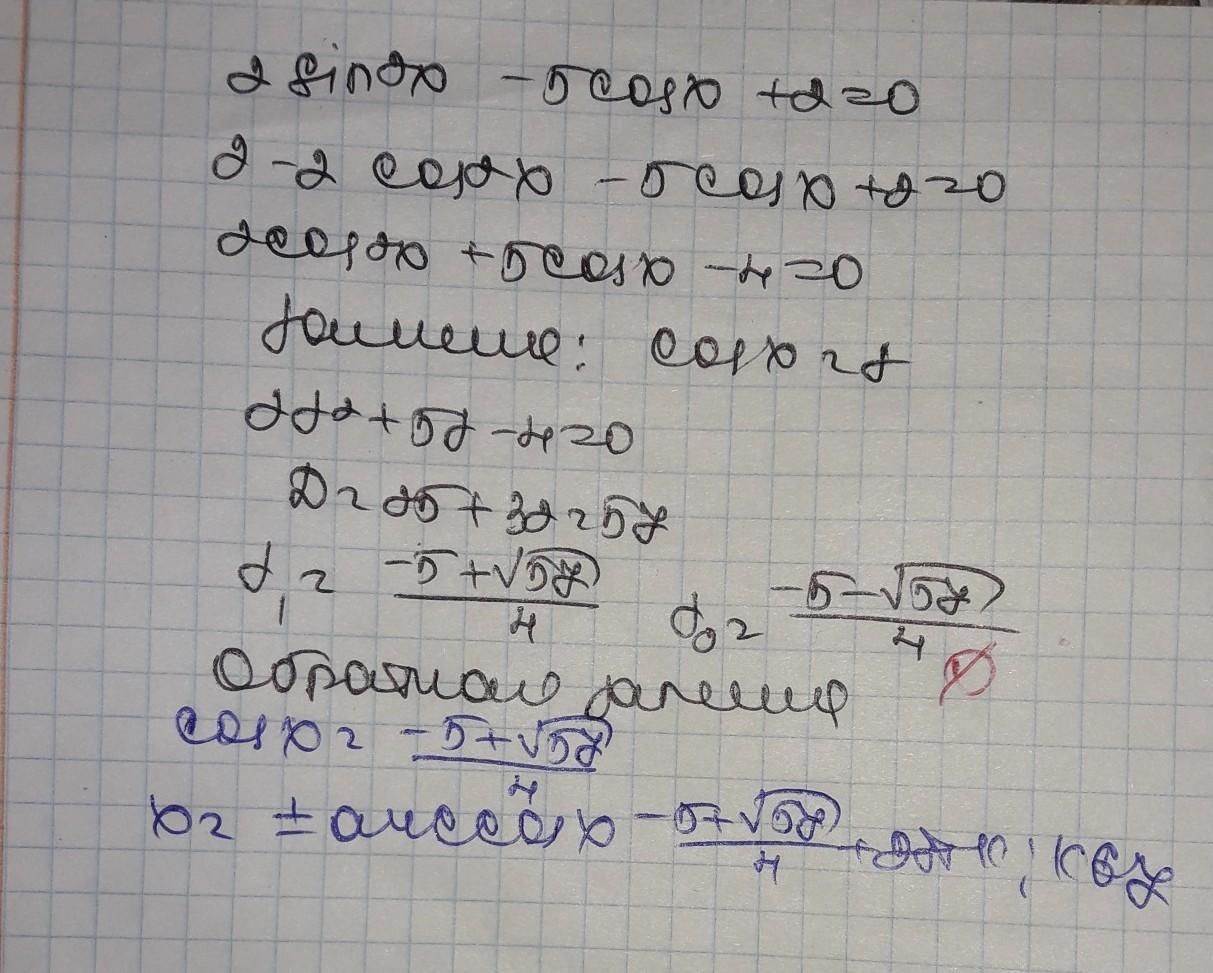 2 sin2x - 5cosx + 2 = 0
2 - 2 cos2x - 5cosx + 2 = 0
2cos2x + 5cosx - 4 = 0
Замена: cosx = t
2t2 + 5t - 4 = 0
D = 25 + 32 = 57
t1 = (-5 + √57)/4 t2 = (-5 - √57)/4 ∅
Обратная замена
cosx = (-5 + √57)/4
x = ± arccosx (-5 + √57)/4 + 2πк; к ∈ z